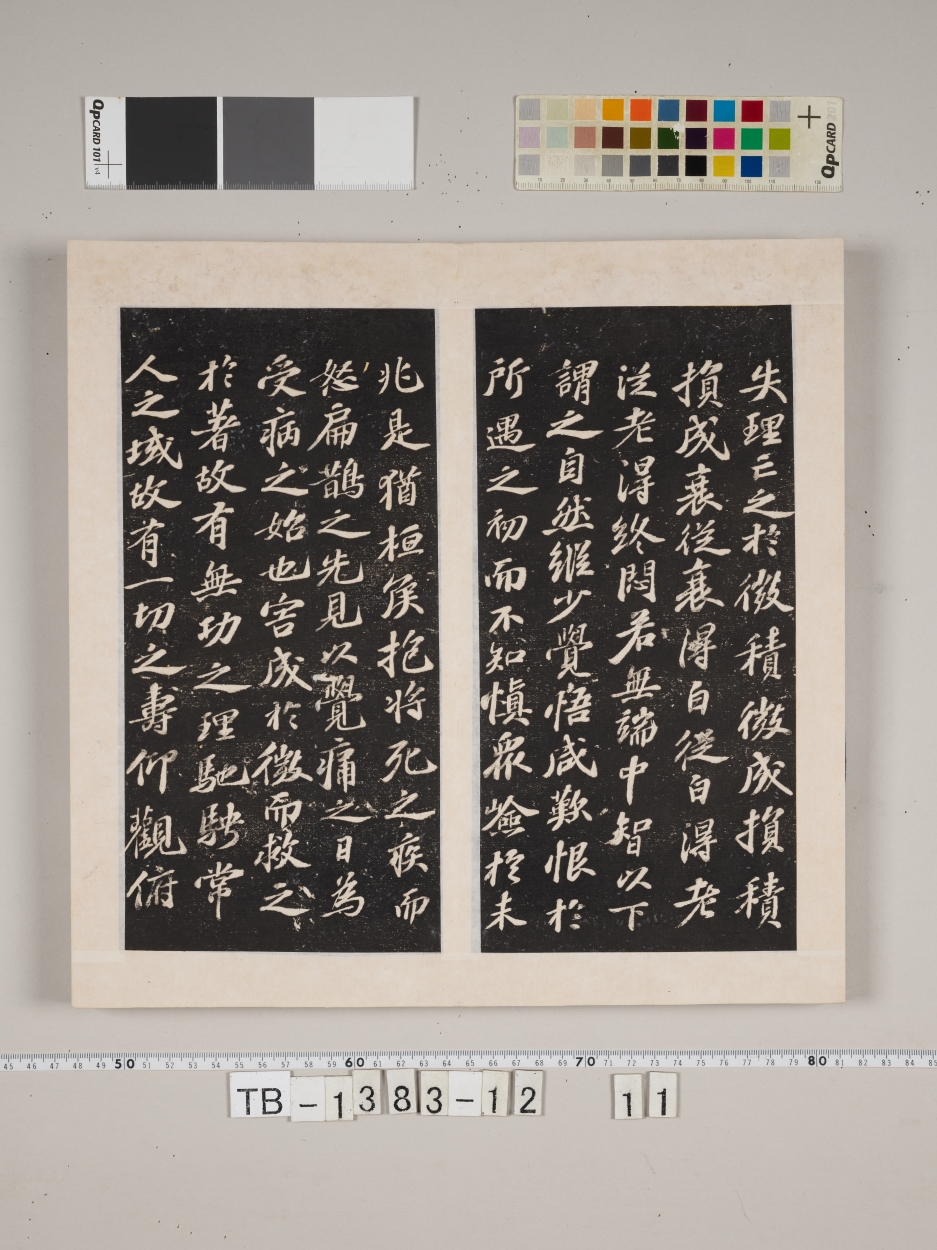 QPCARD 101 v3
QPCARD 201
失理亡之於微積微成損積
損成衰從衰得白從白得老
從老得終悶若無端中智以下
謂之自然縱少覺悟咸歎恨於
所遇之初而不知慎眾嶮於未
兆是猶桓侯抱將死之疾而
怒扁鵲之先見以覺痛之日為
受病之始也害成於微而救之
於著故有無功之理馳騁常
人之域故有一切之壽仰觀俯
45 46 47 48 49 50 51 52 53 54 55 56 57 58 59 60 61 62 63 64 65 66 67 68 69 70 71 72 73 74 75 76 77 78 79 80 81 82 83 84 85
TB-1383-12 11